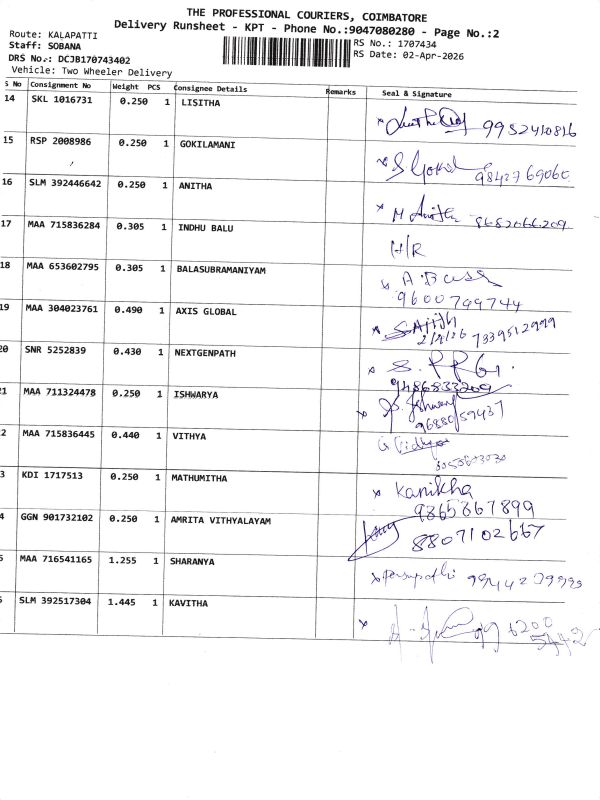 THE PROFESSIONAL COURIERS, COIMBATORE
Delivery Runsheet - KPT - Phone No.:9047080280 - Page No.:2
Route: KALAPATTI
Staff: SOBANA
DRS No.: DCJB170743402
Vehicle: Two Wheeler Delivery
RS No.: 1707434
RS Date: 02-Apr-2026
S No Consignment No Weight PCS Consignee Details Remarks Seal & Signature
14 SKL 1016731 0.250 1 LISITHA 9952410816
15 RSP 2008986 0.250 1 GOKILAMANI S Gokil 9842769060
16 SLM 392446642 0.250 1 ANITHA M Anitha 8682066209
17 MAA 715836284 0.305 1 INDHU BALU H/R
18 MAA 653602795 0.305 1 BALASUBRAMANIYAM
9600799744
19 MAA 304023761 0.490 1 AXIS GLOBAL SAJITH
2/4/26 7339512999
20 SNR 5252839 0.430 1 NEXTGENPATH
9486833209
21 MAA 711324478 0.250 1 ISHWARYA
9688059437
2 MAA 715836445 0.440 1 VITHYA G Vidhya
3 KDI 1717513 0.250 1 MATHUMITHA Kanikha
9865867899
4 GGN 901732102 0.250 1 AMRITA VITHYALAYAM 8807102667
5 MAA 716541165 1.255 1 SHARANYA
SLM 392517304 1.445 1 KAVITHA